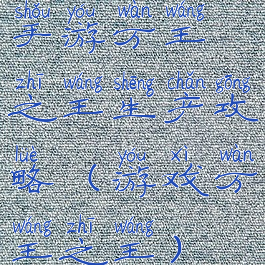 shǒu yóu wàn wáng
手游万王
zhī wáng shēng chǎn gōng
之王生产攻
lüè yóu xì wàn
略（游戏万
wáng zhī wáng
王之王）